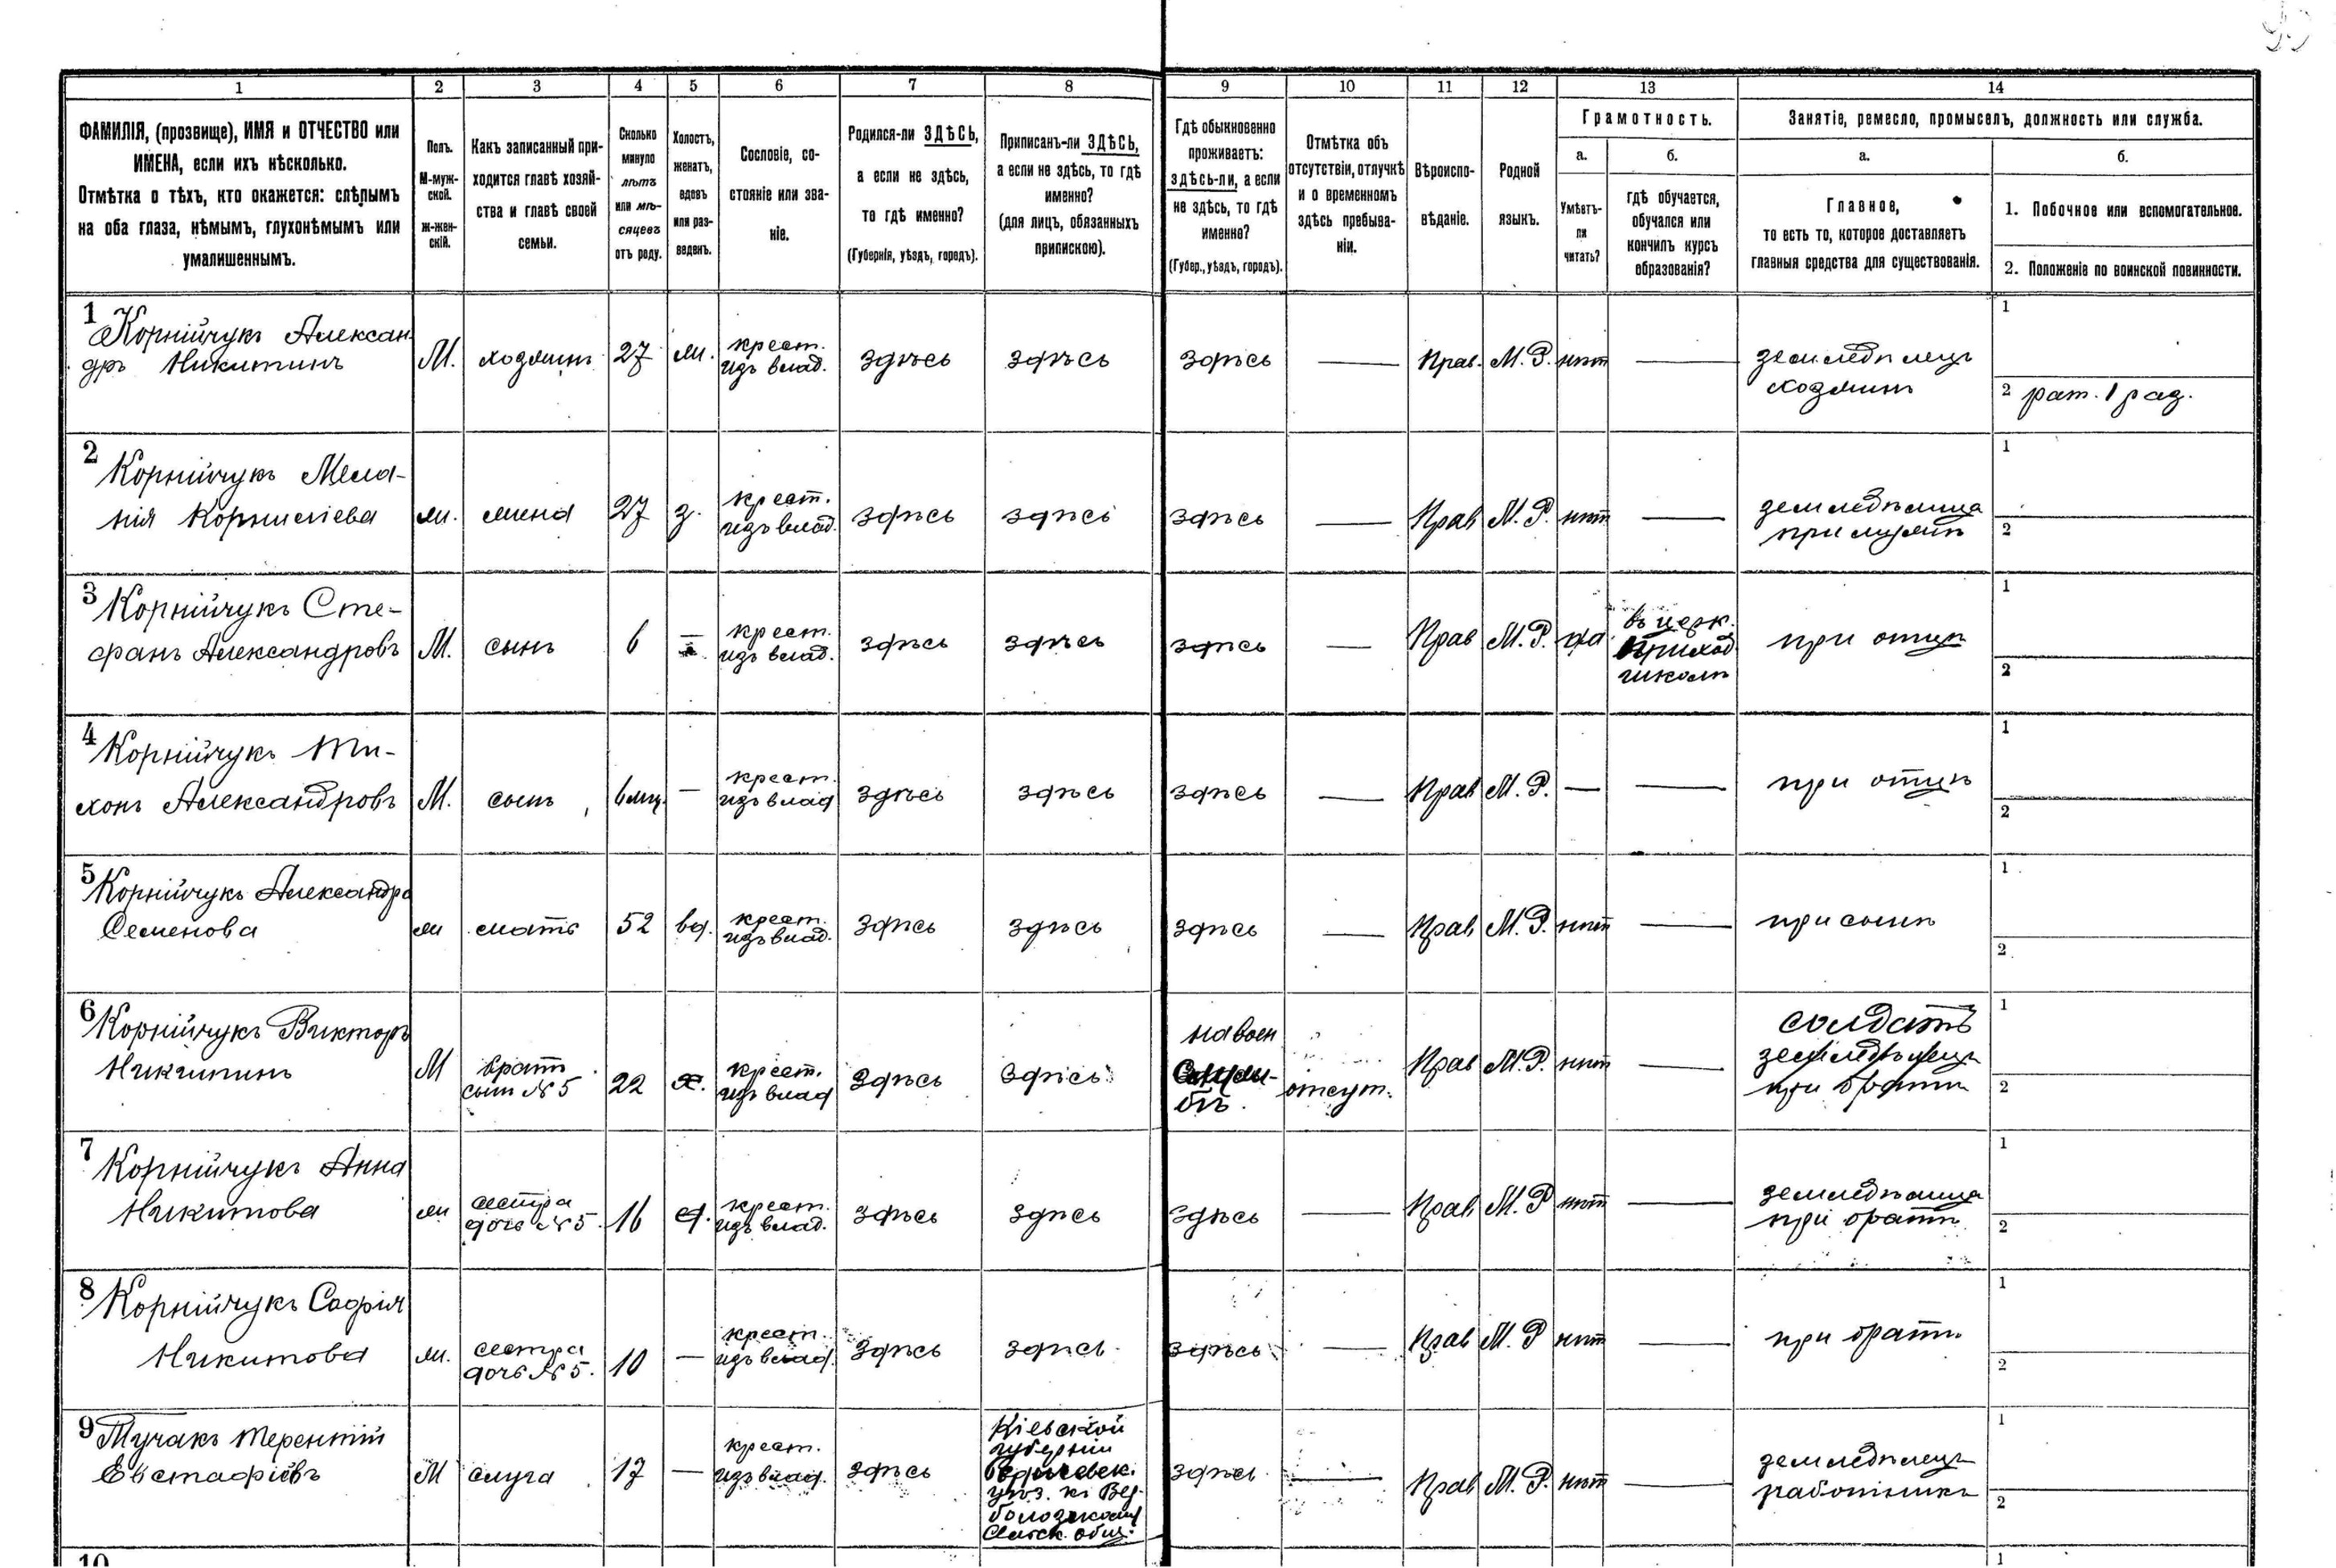 1 2 3 4 5 6 7 8 9 10 11 12 13 14
ФАМИЛІЯ, (прозвище), ИМЯ и ОТЧЕСТВО или
ИМЕНА, если ихъ нѣсколько.
Отмѣтка о тѣхъ, кто окажется: слѣпымъ
на оба глаза, нѣмымъ, глухонѣмымъ или
умалишеннымъ.
Полъ.
М-муж-
ской.
Ж-жен-
скій.
Какъ записанный при-
ходится главѣ хозяй-
ства и главѣ своей
семьи.
Сколько
минуло
лѣтъ
или мѣ-
сяцевъ
отъ роду.
Холостъ,
женатъ,
вдовъ
или раз-
веденъ.
Сословіе, со-
стояніе или зва-
ніе.
Родился-ли ЗДѢСЬ,
а если не здѣсь,
то гдѣ именно?
(Губернія, уѣздъ, городъ).
Приписанъ-ли ЗДѢСЬ,
а если не здѣсь, то гдѣ
именно?
(для лицъ, обязанныхъ
припискою).
Гдѣ обыкновенно
проживаетъ:
здѣсь-ли, а если
не здѣсь, то гдѣ
именно?
(Губер., уѣздъ, городъ).
Отмѣтка объ
отсутствіи, отлучкѣ
и о временномъ
здѣсь пребыва-
ніи.
Вѣроиспо-
вѣданіе.
Родной
языкъ.
Грамотность.
а.
Умѣетъ-
ли
читать?
б.
гдѣ обучается,
обучался или
кончилъ курсъ
образованія?
Занятіе, ремесло, промыселъ, должность или служба.
а.
Главное,
то есть то, которое доставляетъ
главныя средства для существованія.
б.
1. Побочное или вспомогательное.
2. Положеніе по воинской повинности.
1
Корнійчукъ Алексан-
дръ Никитинъ
М.
хозяинъ
27
ж.
крест.
изъ влад.
здѣсь
здѣсь
здѣсь
—
Прав.
М. Р.
нѣт
—
земледѣлецъ
хозяинъ
1
2 рат. 1 раз.
2
Корнійчукъ Мела-
нія Корниліева
ж.
жена
27
з.
крест.
изъ влад.
здѣсь
здѣсь
здѣсь
—
Прав
М. Р.
нѣт
—
земледѣлица
при мужѣ
1
2
3
Корнійчукъ Сте-
фанъ Александровъ
М.
сынъ
6
—
крест.
изъ влад.
здѣсь
здѣсь
здѣсь
—
Прав
М. Р.
да
въ церк.
приход
школѣ
при отцѣ
1
2
4
Корнійчукъ Ти-
хонъ Александровъ
М.
сынъ
6 мц.
—
крест.
изъ влад
здѣсь
здѣсь
здѣсь
—
Прав
М. Р.
—
—
при отцѣ
1
2
5
Корнійчукъ Александра
Семенова
ж
мать
52
вд.
крест.
изъ влад.
здѣсь
здѣсь
здѣсь
—
Прав
М. Р.
нѣт
—
при сынѣ
1
2
6
Корнійчукъ Викторъ
Никитинъ
М
братъ
сынъ №5
22
х.
крест.
изъ влад
здѣсь
здѣсь
на воен
служ-
бѣ.
отсут.
Прав
М. Р.
нѣт
—
солдатъ
земледѣлецъ
при братѣ
1
2
7
Корнійчукъ Анна
Никитова
ж
сестра
дочь №5.
16
д.
крест.
изъ влад.
здѣсь
здѣсь
здѣсь
—
Прав
М. Р
нѣт
—
земледѣлица
при братѣ
1
2
8
Корнійчукъ Софія
Никитова
ж.
сестра
дочь №5.
10
—
крест.
изъ влад.
здѣсь
здѣсь
здѣсь
—
Прав
М. Р
нѣт
—
при братѣ
1
2
9
Тучакъ Терентій
Евстафіевъ
М
слуга
17
—
крест.
изъ влад.
здѣсь
Кіевской
губерніи
Бердичевск.
уѣз. къ
Сельск. общ.
здѣсь
—
Прав
М. Р.
нѣт
—
земледѣлецъ
работникъ
1
2
10
1